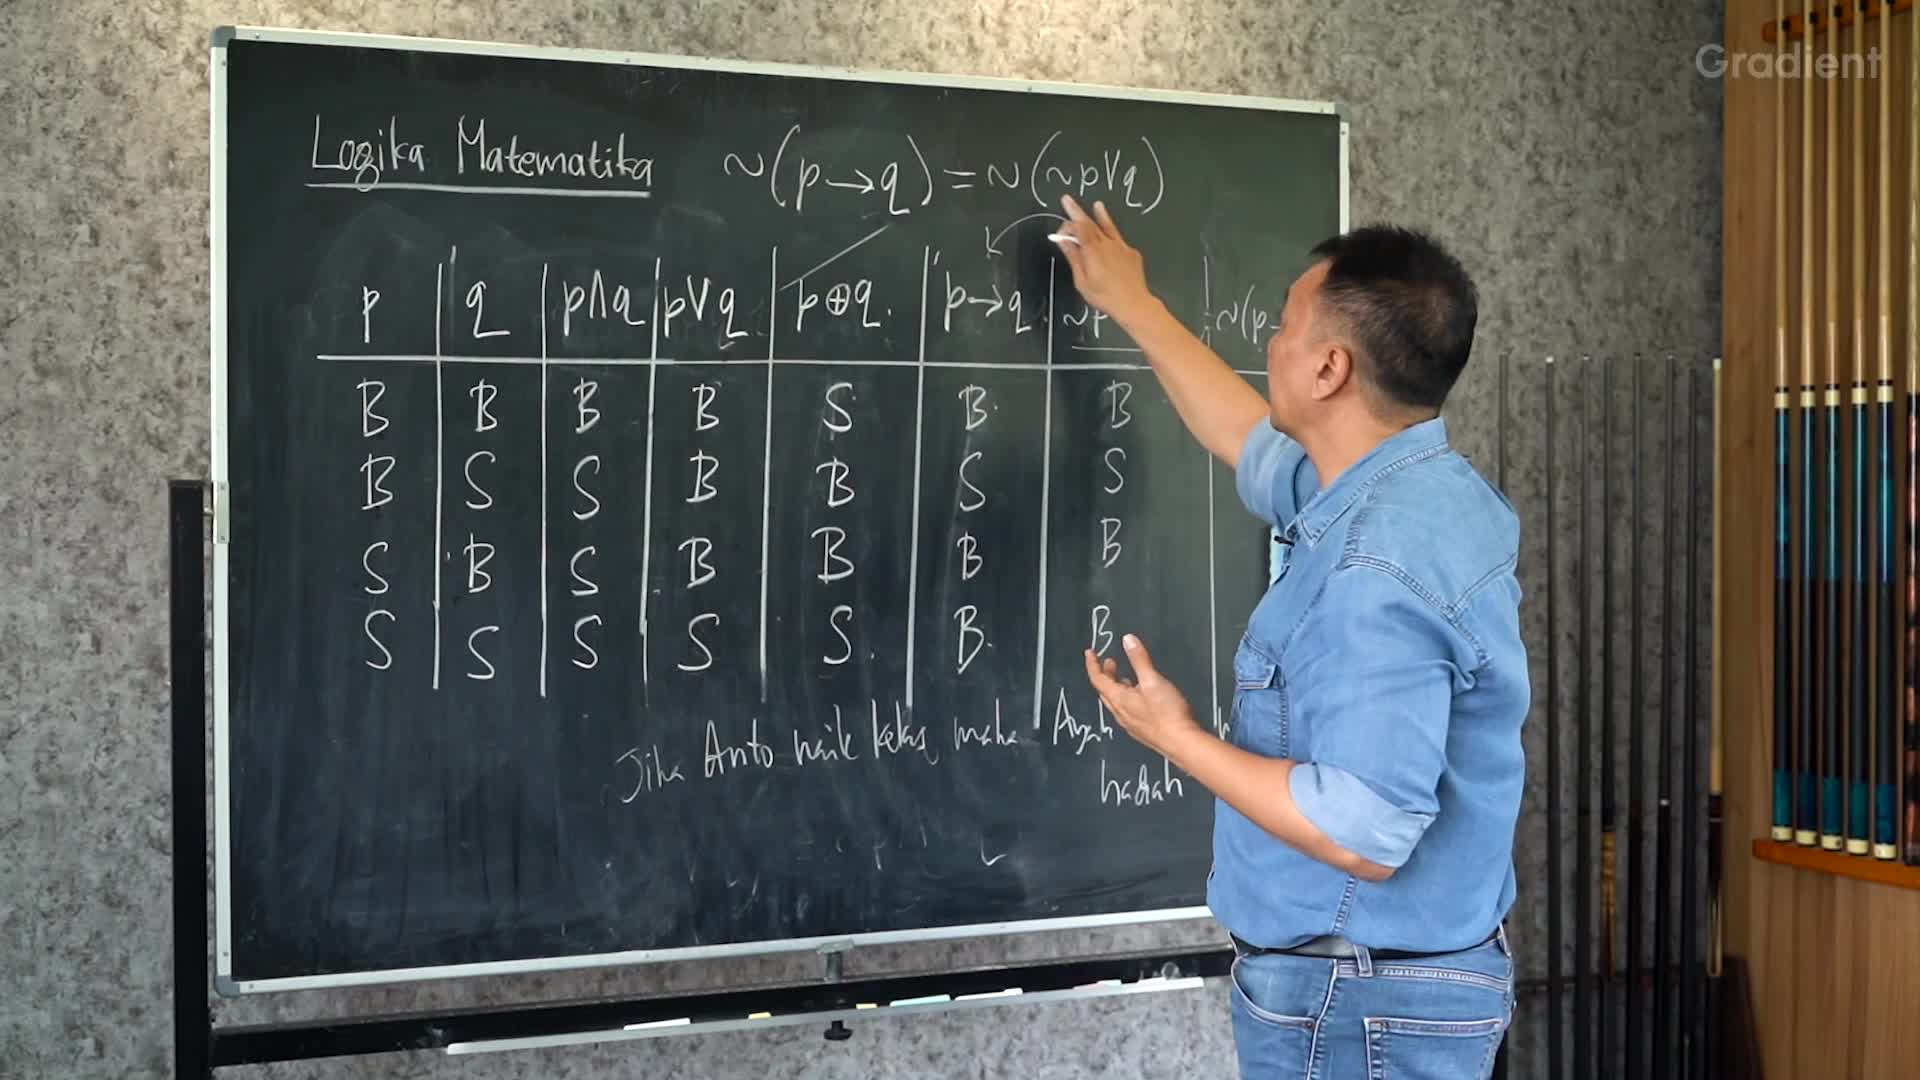 Gradient
Logika Matematika
~(p→q) = ~(~p∨q)
p q p∧q p∨q p⊕q p→q ~p ~(p
B B B B S B B
B S S B B S S
S B S B B B B
S S S S S B B
Jika Anto naik kelas maka Ayah
hadiah